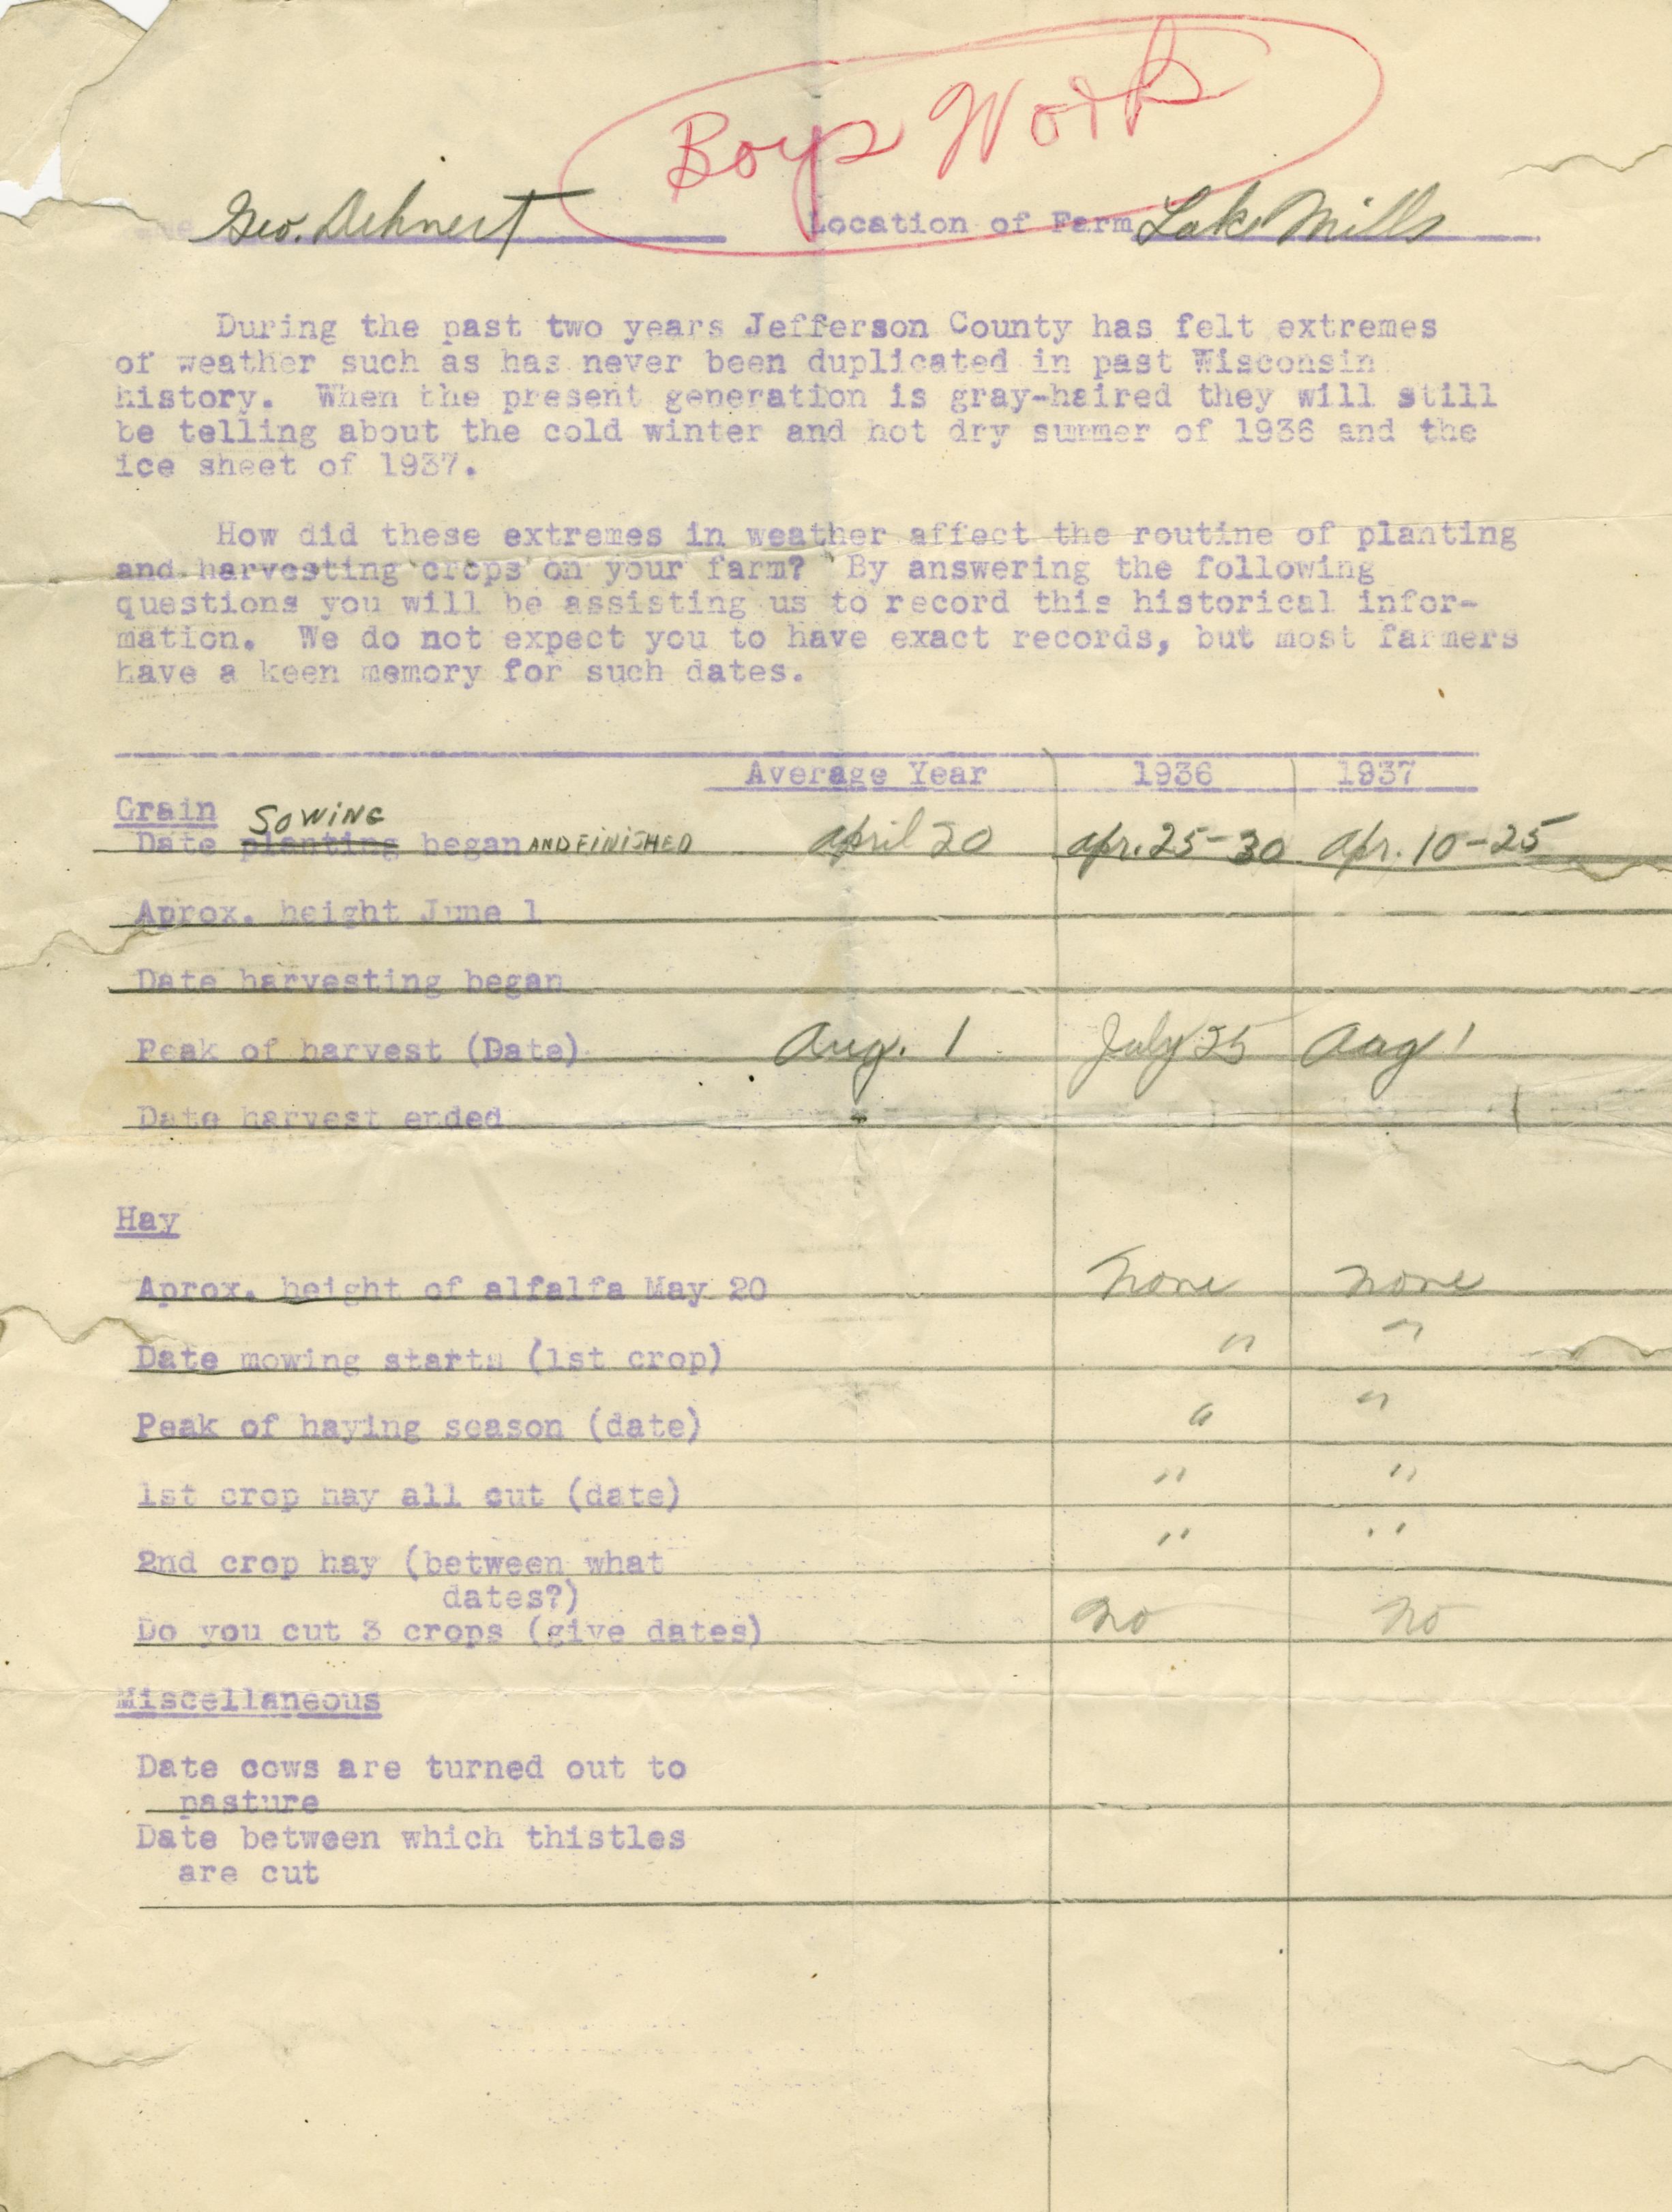 Boys Work
Geo. Dehnert Location of Farm Lake Mills
During the past two years Jefferson County has felt extremes
of weather such as has never been duplicated in past Wisconsin
history. When the present generation is gray-haired they will still
be telling about the cold winter and hot dry summer of 1936 and the
ice sheet of 1937.
How did these extremes in weather affect the routine of planting
and harvesting crops on your farm? By answering the following
questions you will be assisting us to record this historical infor-
mation. We do not expect you to have exact records, but most farmers
have a keen memory for such dates.
Average Year 1936 1937
Grain
Date planting SOWING began AND FINISHED April 20 Apr. 25-30 Apr. 10-25
Aprox. height June 1
Date harvesting began
Peak of harvest (Date) Aug. 1 July 25 Aug 1
Date harvest ended
Hay
Aprox. height of alfalfa May 20 none none
Date mowing starts (1st crop) " "
Peak of haying season (date) " "
1st crop hay all cut (date) " "
2nd crop hay (between what " "
dates?)
Do you cut 3 crops (give dates) no no
Miscellaneous
Date cows are turned out to
pasture
Date between which thistles
are cut